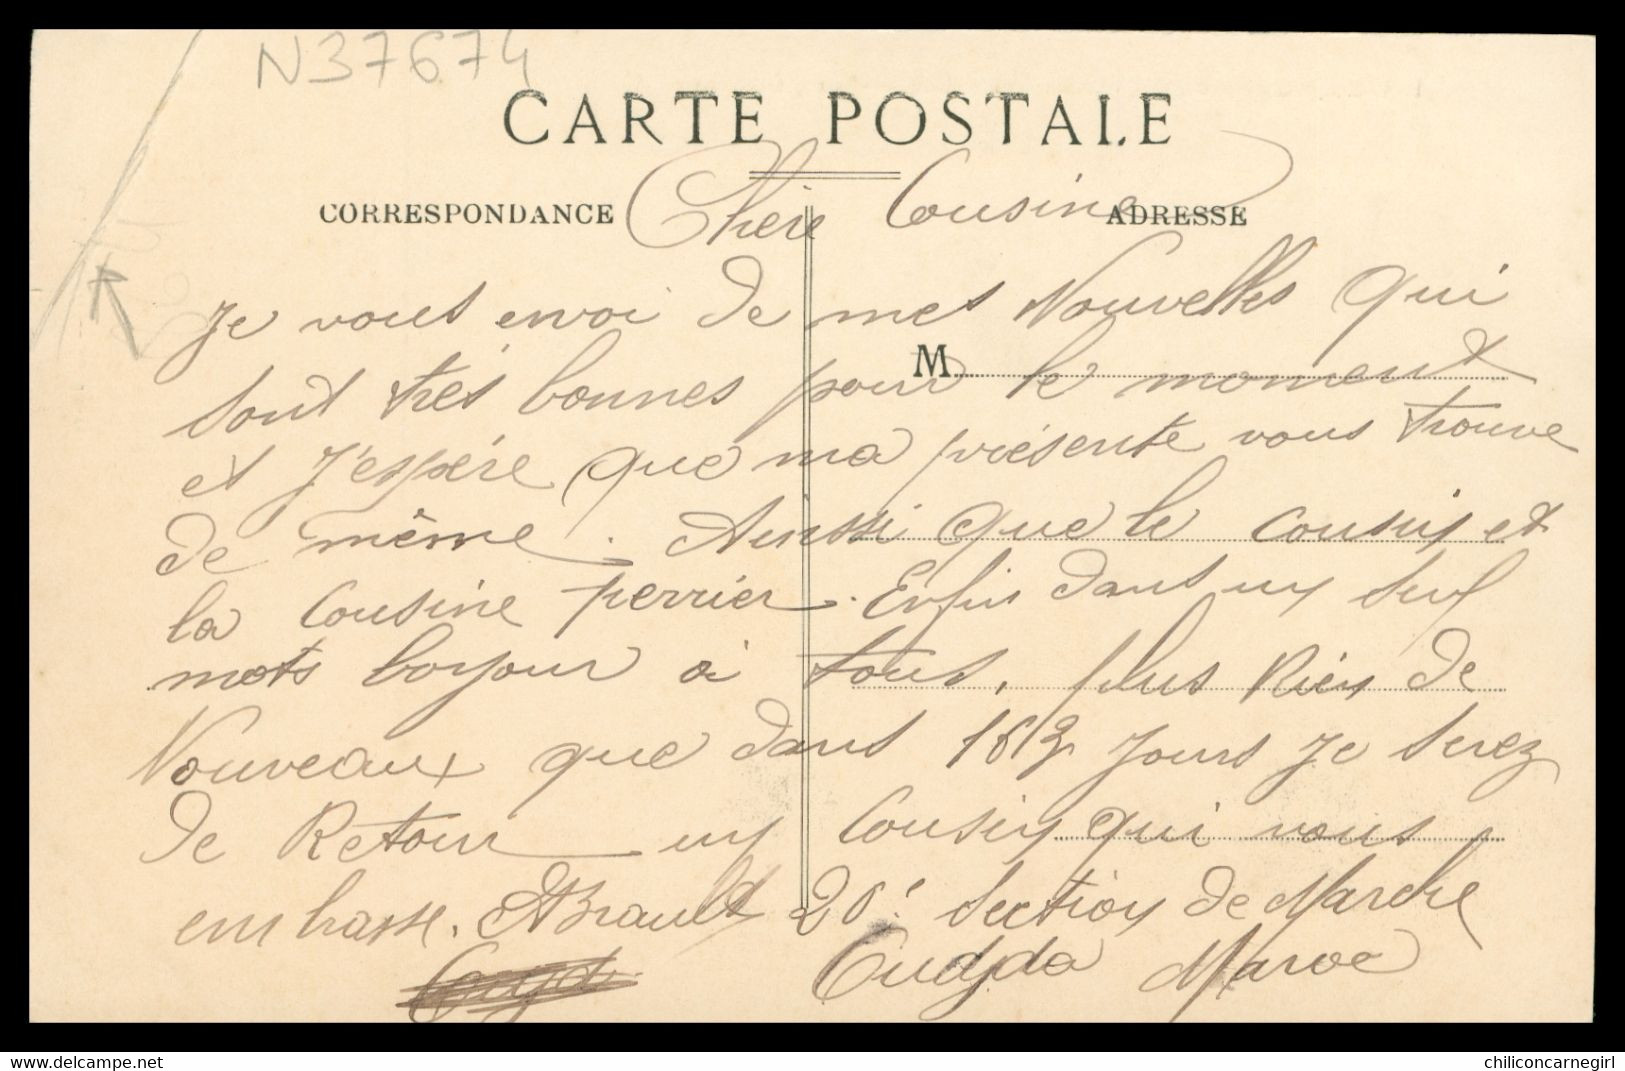 N37674
CARTE POSTALE
CORRESPONDANCE
ADRESSE
Chère Cousine
Je vous envoi de mes Nouvelles qui
M
sont très bonnes pour le moment
et J'espère que ma présente vous trouve
de même. Ainssi que le cousin et
la Cousine perrier. Enfin dans un seul
mots bonjour à tous, plus Rien de
Nouveaux que dans 18 Jours Je serez
de Retour un Cousin qui vous
embrasse. ABrault 20e Section de Marche
Oudjda Maroc
www.delcampe.net
chiliconcarnegirl